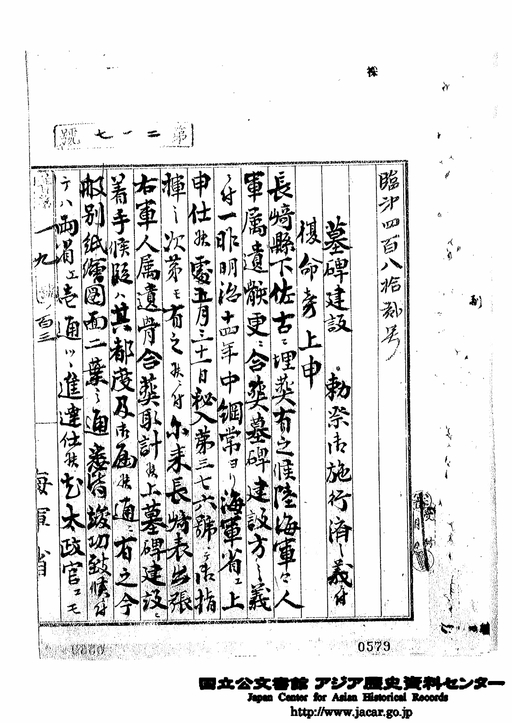 第二一七號
臨第四百八拾貳号
墓碑建設 勅祭御施行済之義ニ付
復命旁上申
長崎縣下佐古ニ埋葬有之候陸海軍々人
軍属遺骸更ニ合葬墓碑建設方之義
ニ付一昨明治十四年中綱常ヨリ海軍省エ上
申仕候處五月三十一日秘入第三七六號ニテ御指
揮之次第モ有之候ニ付尓来長崎表出張
右軍人属遺骨合葬取計候上墓碑建設ニ
着手候段ハ其都度及御届候通ニ有之今
般別紙繪圖面二葉之通悉皆竣功致候ニ付
テハ両省エ壱通ツヽ進達仕候尤太政官エモ
海軍省
一九
百三
0579
国立公文書館 アジア歴史資料センター
Japan Center for Asian Historical Records
http://www.jacar.go.jp